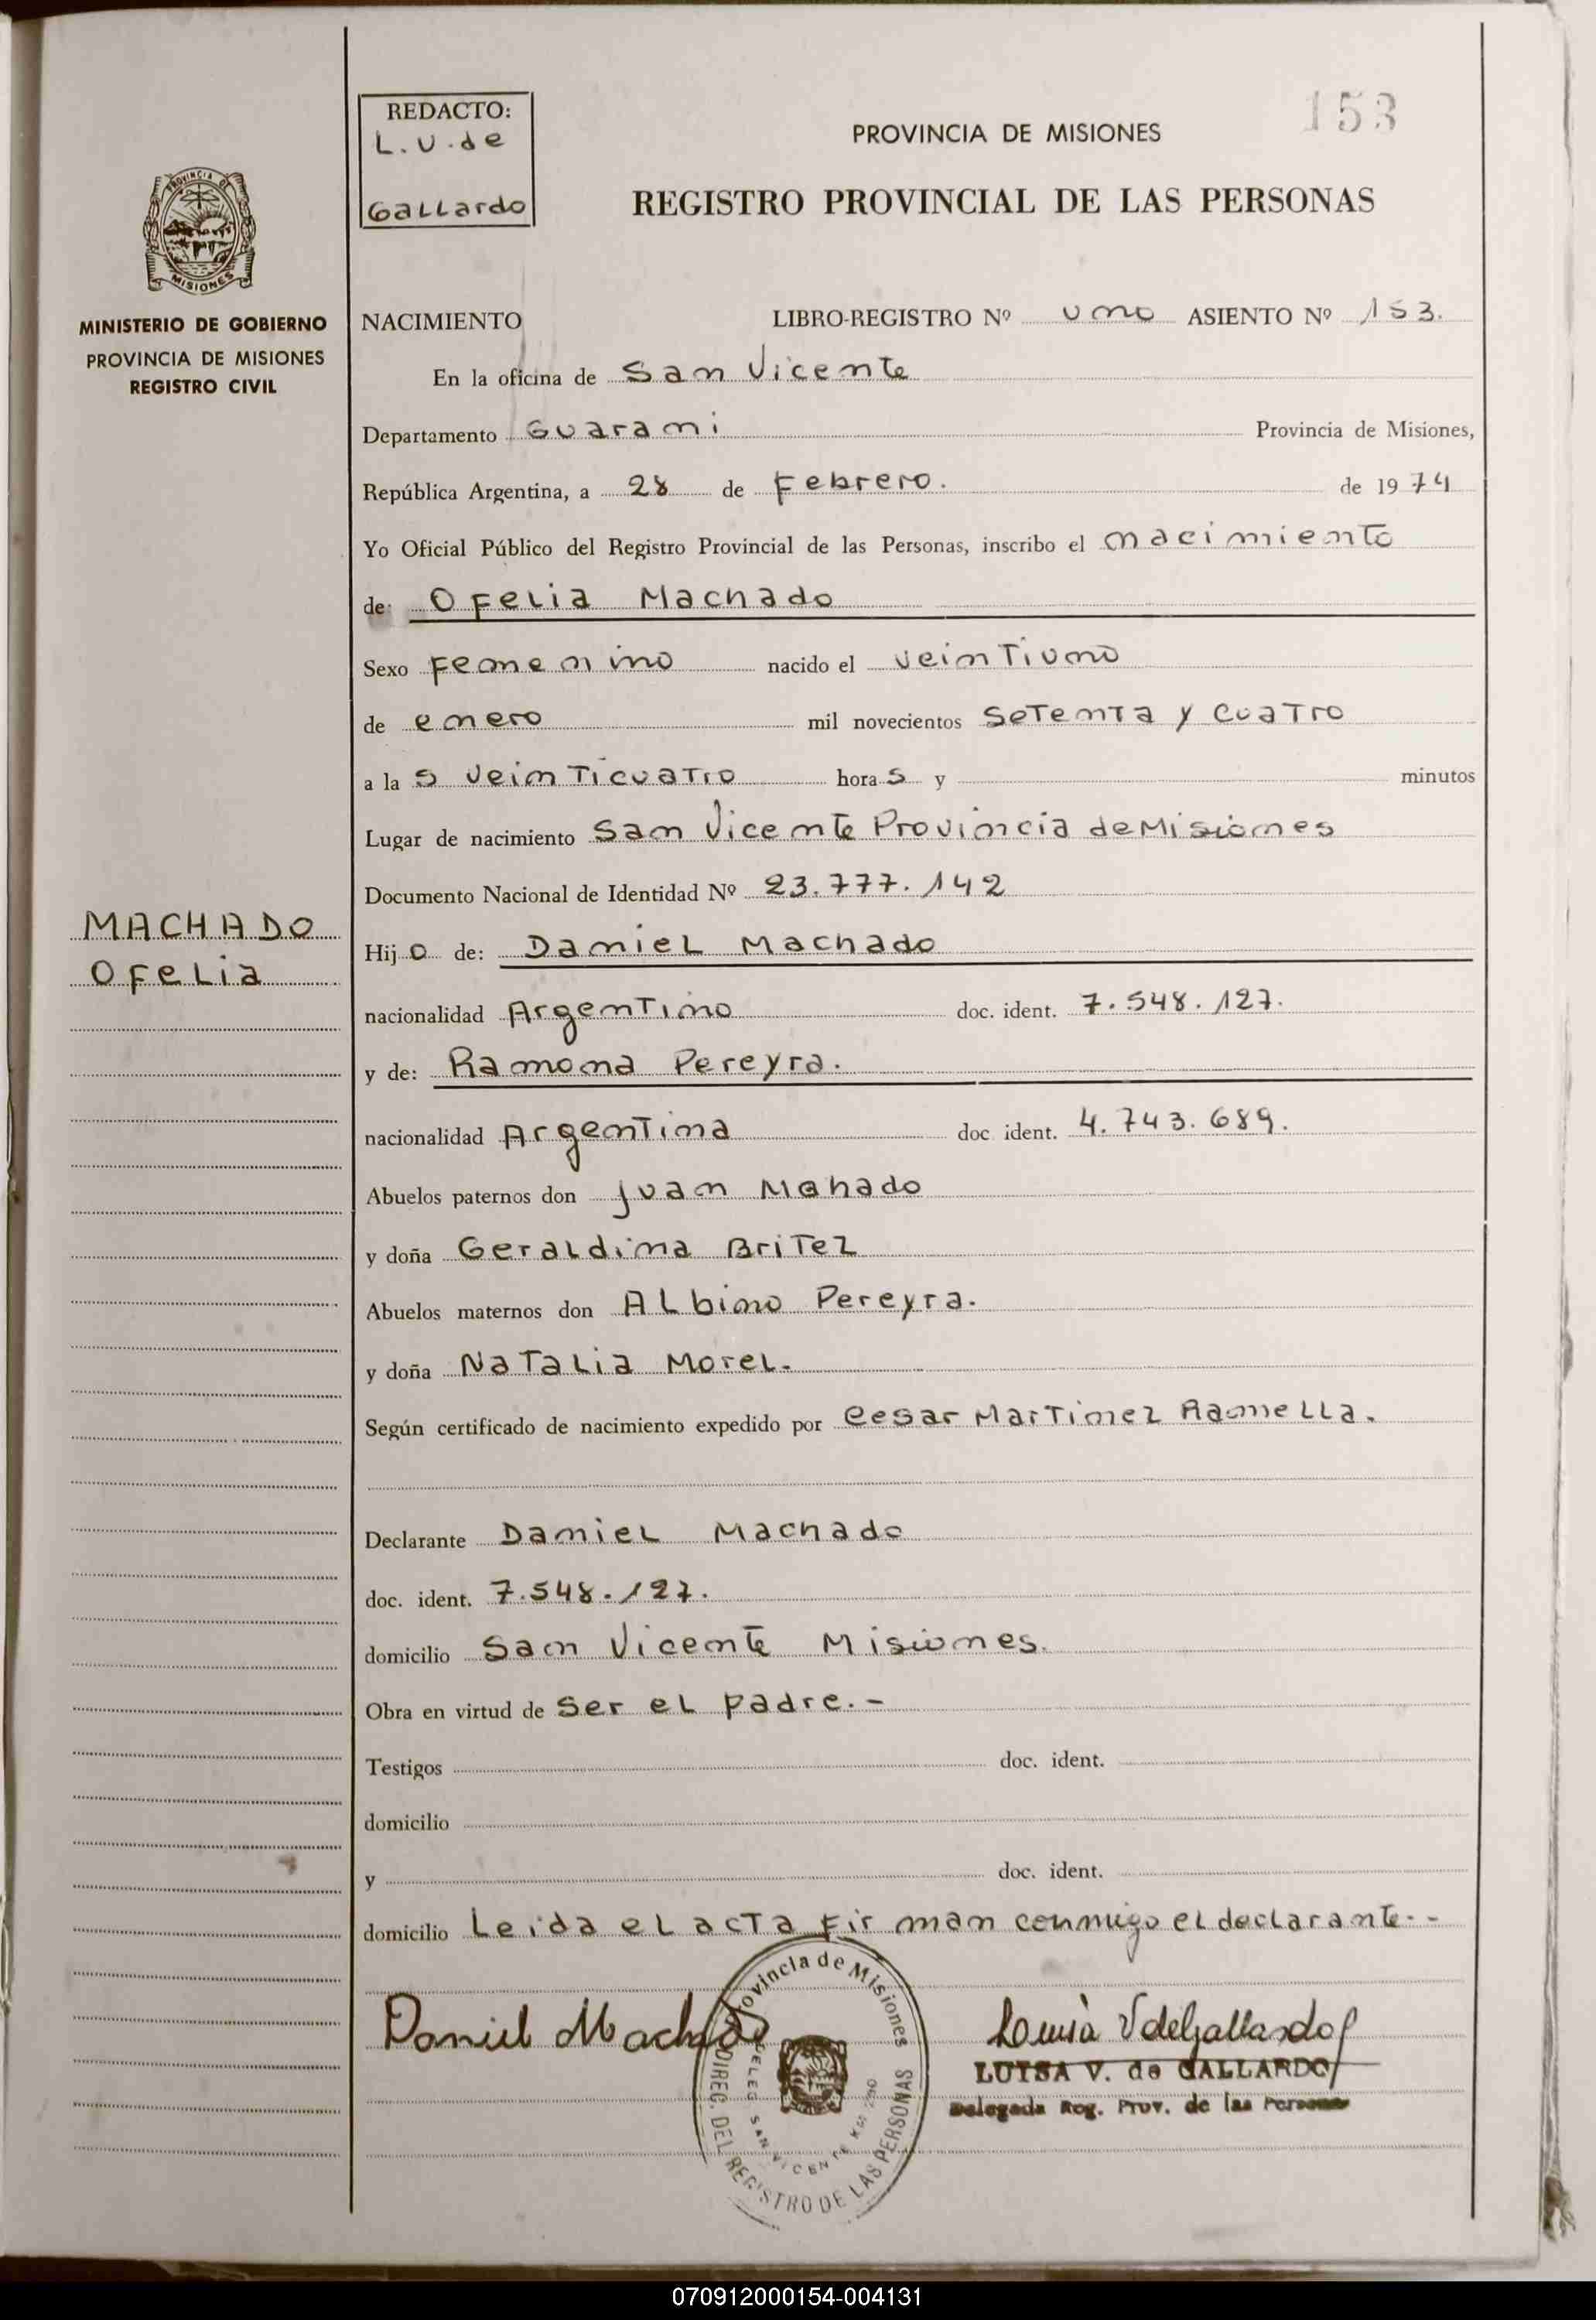 REDACTO:
L.V.de
Gallardo
153
PROVINCIA DE MISIONES
REGISTRO PROVINCIAL DE LAS PERSONAS
PROVINCIA DE MISIONES
MINISTERIO DE GOBIERNO
PROVINCIA DE MISIONES
REGISTRO CIVIL
NACIMIENTO LIBRO-REGISTRO Nº uno ASIENTO Nº 153.
En la oficina de San Vicente
Departamento Guarani Provincia de Misiones,
República Argentina, a 28 de Febrero. de 1974
Yo Oficial Público del Registro Provincial de las Personas, inscribo el nacimiento
de: Ofelia Machado
Sexo Femenino nacido el veintiuno
de enero mil novecientos setenta y cuatro
a las veinticuatro horas y minutos
Lugar de nacimiento San Vicente Provincia de Misiones
Documento Nacional de Identidad Nº 23.777.142
MACHADO
Ofelia
Hijo de: Daniel Machado
nacionalidad Argentino doc. ident. 7.548.127.
y de: Ramona Pereyra.
nacionalidad Argentina doc ident. 4.743.689.
Abuelos paternos don Juan Mahado
y doña Geraldina Britez
Abuelos maternos don Albino Pereyra.
y doña Natalia Morel.
Según certificado de nacimiento expedido por Cesar Martinez Ramella.
Declarante Daniel Machado
doc. ident. 7.548.127.
domicilio San Vicente Misiones.
Obra en virtud de ser el padre.-
Testigos doc. ident.
domicilio
y doc. ident.
domicilio Leida el acta firman conmigo el declarante.-
Daniel Machado
Provincia de Misiones
DIREC. DEL REGISTRO DE LAS PERSONAS
DELEG. SAN VICENTE KM
Luisa V de Gallardo
LUISA V. de GALLARDO
Delegada Reg. Prov. de las Personas
070912000154-004131